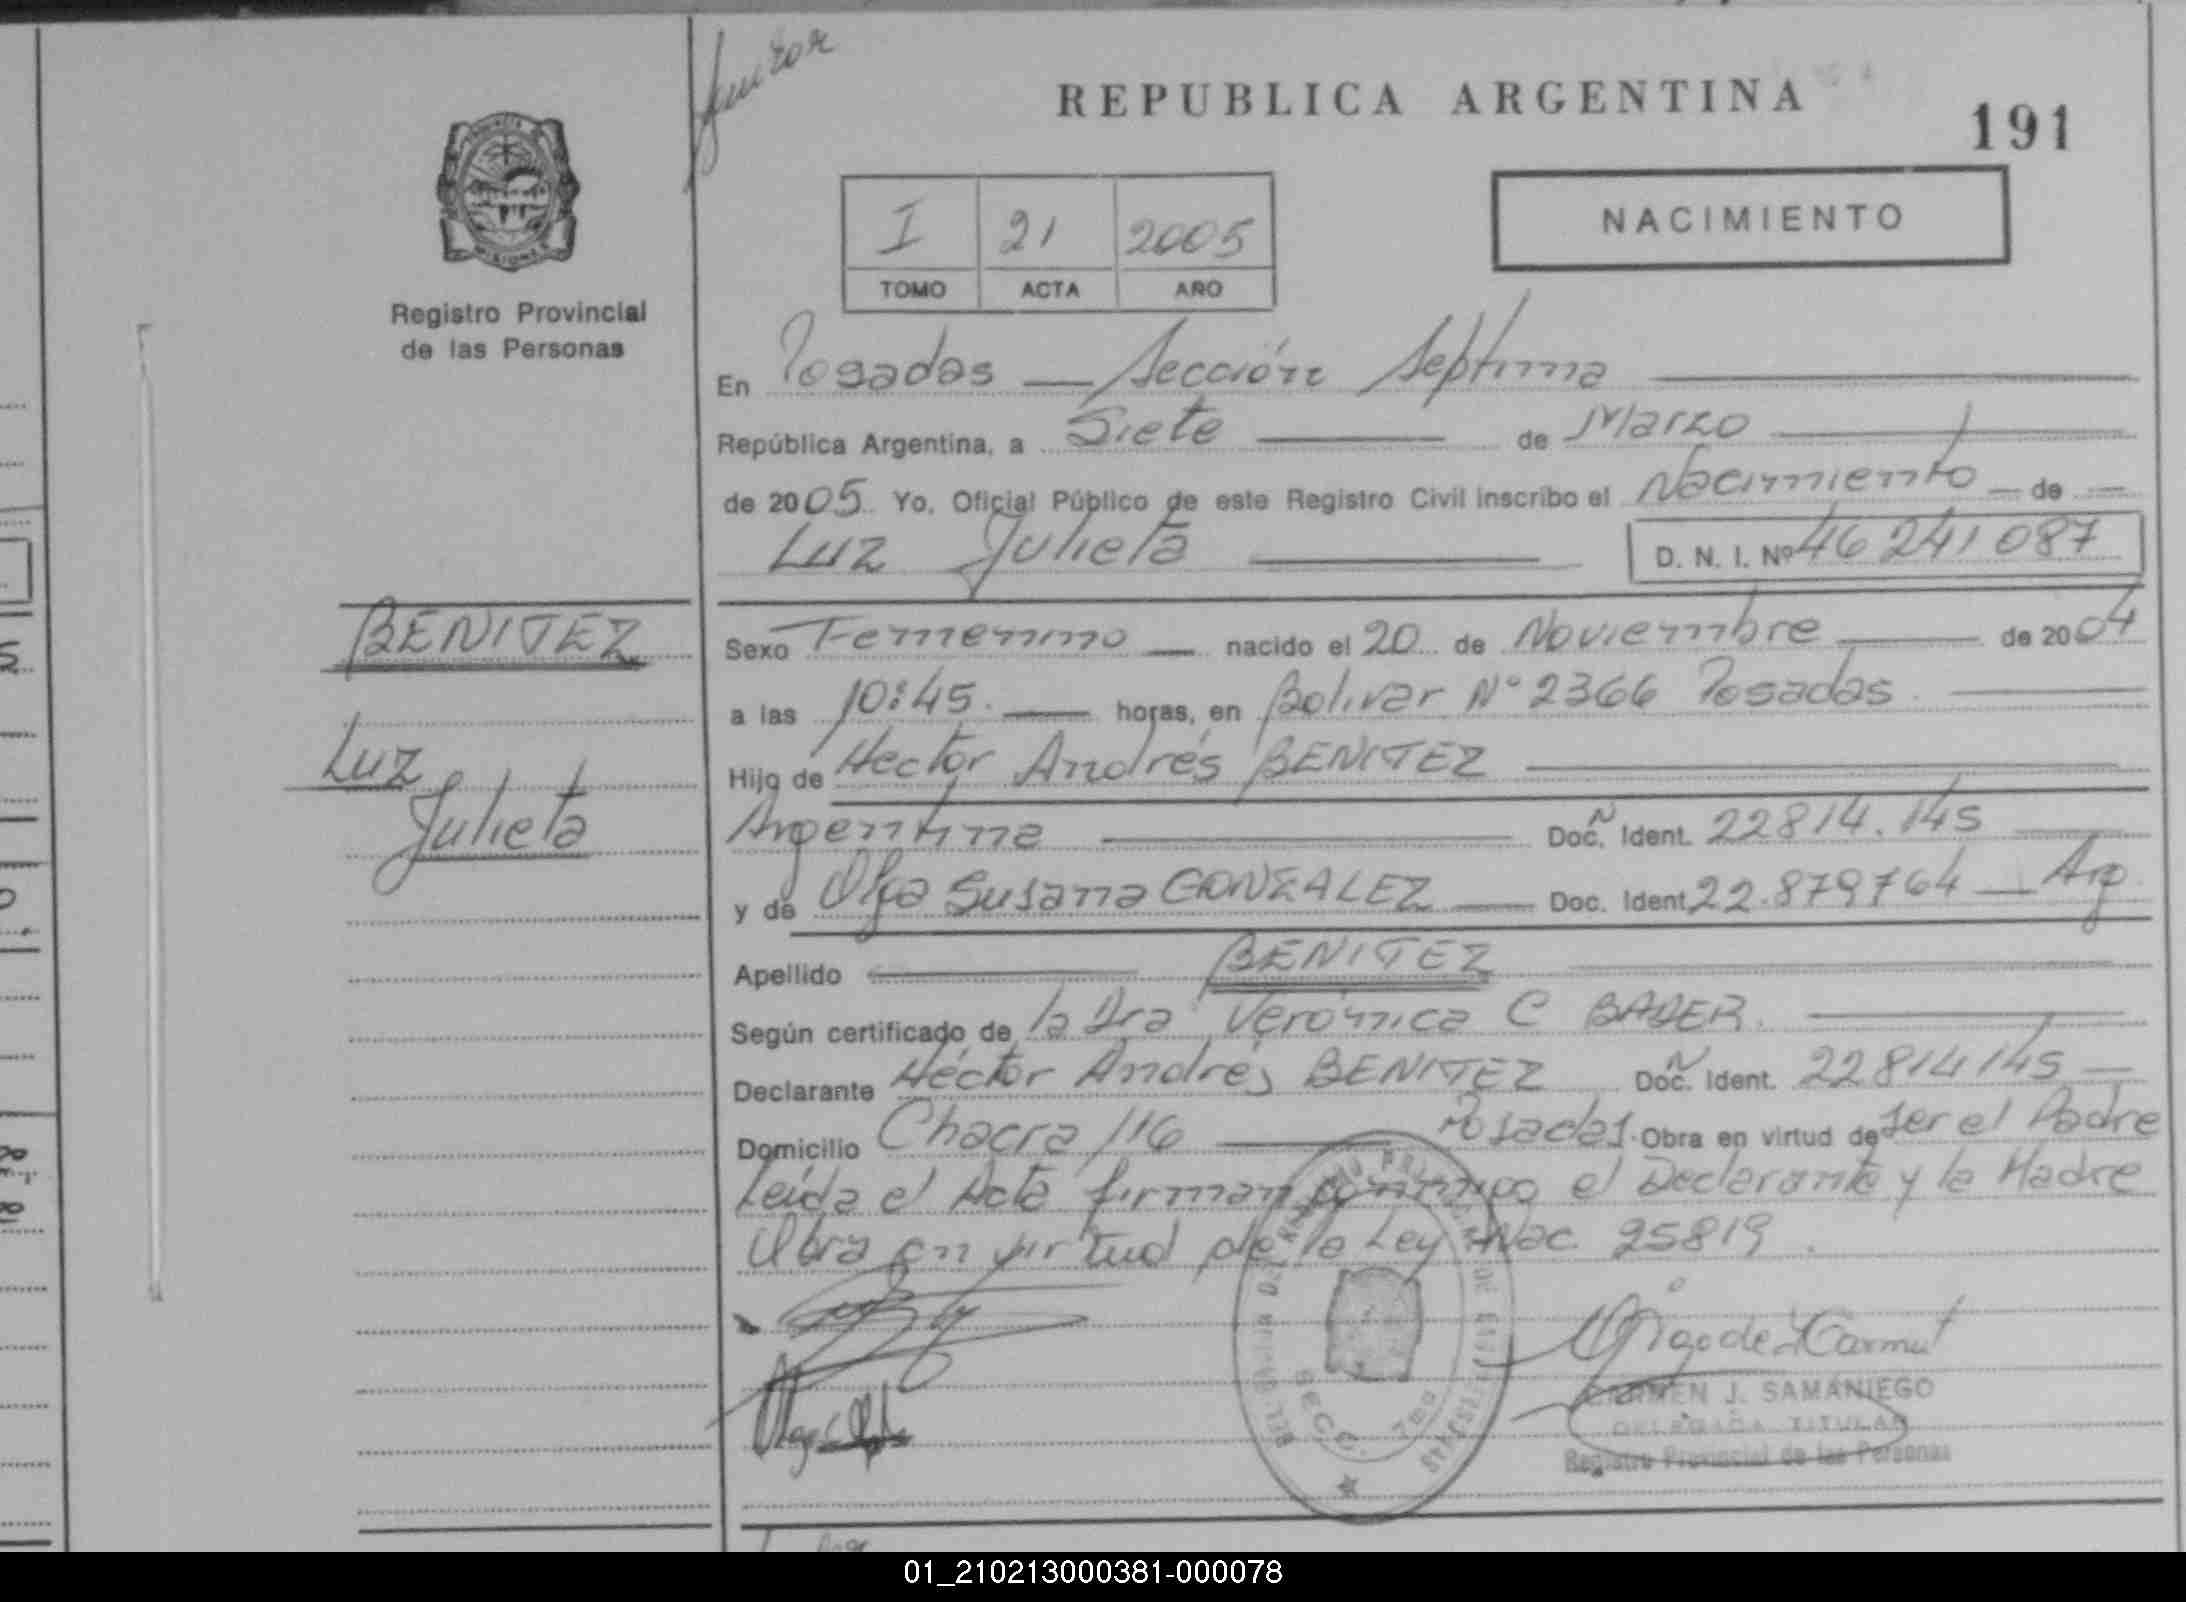 REPUBLICA ARGENTINA
191
NACIMIENTO
I 21 2005
TOMO ACTA AÑO
PROVINCIA DE
MISIONES
Registro Provincial
de las Personas
BENITEZ
Luz
Julieta
En Posadas — Sección Septima
República Argentina, a Siete de Marzo
de 2005. Yo, Oficial Público de este Registro Civil inscribo el Nacimiento — de —
Luz Julieta D. N. I. Nº 46 241 087
Sexo Femenino — nacido el 20 de Noviembre de 2004
a las 10:45. — horas, en Bolivar Nº 2366 Posadas.
Hijo de Hector Andrés BENITEZ
Argentina Doc. Ident. 22814.145
y de Olga Susana GONZALEZ — Doc. Ident. 22.879764 — Arg
Apellido BENITEZ
Según certificado de la Dra Verónica C BADER.
Declarante Héctor Andrés BENITEZ Doc. Ident. 22814145 —
Domicilio Chacra 116 — Posadas. Obra en virtud de ser el Padre
Leída el Acta firman conmigo el Declarante y la Madre
Obra en virtud de la Ley Nac. 25819.
SECC.
CARMEN J. SAMANIEGO
DELEGADA TITULAR
Registro Provincial de las Personas
01_210213000381-000078